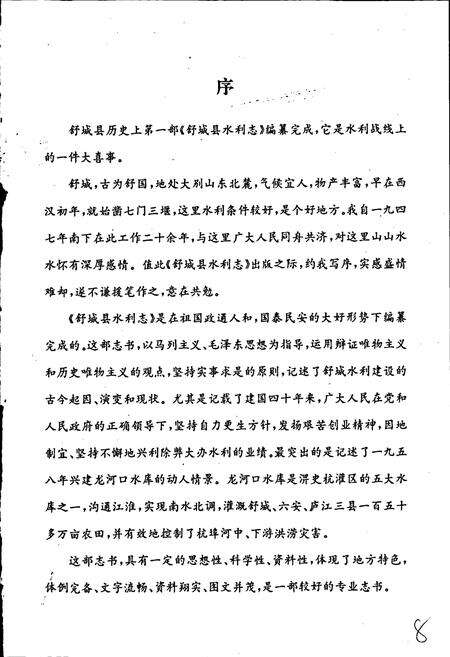 序
舒城县历史上第一部《舒城县水利志》编纂完成，它是水利战线上
的一件大喜事。
舒城，古为舒国，地处大别山东北麓，气候宜人，物产丰富，早在西
汉初年，就始凿七门三堰，这里水利条件较好，是个好地方。我自一九四
七年南下在此工作二十余年，与这里广大人民同舟共济，对这里山山水
水怀有深厚感情。值此《舒城县水利志》出版之际，约我写序，实感盛情
难却，遂不谦拨笔作之，意在共勉。
《舒城县水利志》是在祖国政通人和，国泰民安的大好形势下编纂
完成的。这部志书，以马列主义、毛泽东思想为指导，运用辩证唯物主义
和历史唯物主义的观点，坚持实事求是的原则，记述了舒城水利建设的
古今起因、演变和现状。尤其是记载了建国四十年来，广大人民在党和
人民政府的正确领导下，坚持自力更生方针，发扬艰苦创业精神，因地
制宜、坚持不懈地兴利除弊大办水利的业绩。最突出的是记述了一九五
八年兴建龙河口水库的动人情景。龙河口水库是淠史杭灌区的五大水
库之一，沟通江淮，实现南水北调，灌溉舒城、六安、庐江三县一百五十
多万亩农田，并有效地控制了杭埠河中、下游洪涝灾害。
这部志书，具有一定的思想性、科学性、资料性，体现了地方特色，
体例完备、文字流畅、资料翔实、图文并茂，是一部较好的专业志书。
8